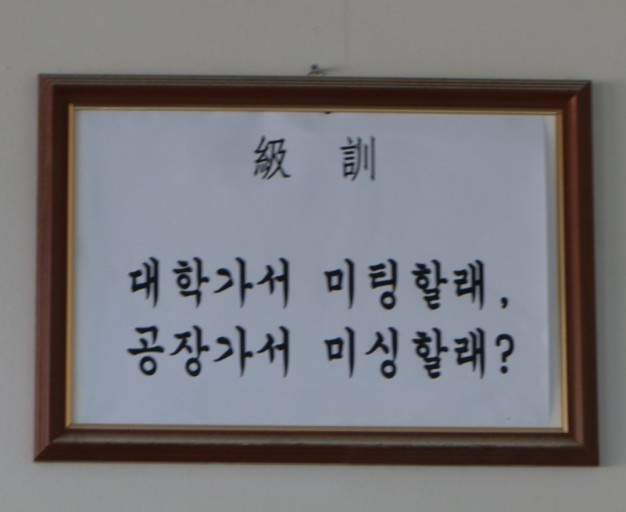 級 訓
대학가서 미팅할래,
공장가서 미싱할래?